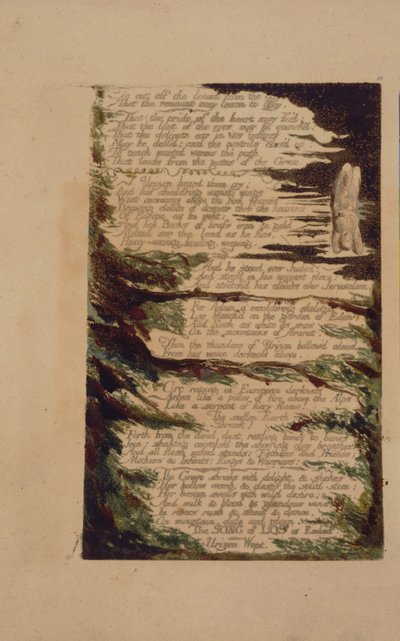 To cut off the bread from the city,
That the remnant may learn to obey.
That the pride of the heart may fail;
That the lust of the eyes may be quench'd:
That the delicate ear in its infancy
May be dull'd; and the nostrils clos'd up;
To teach mortal worms the path
That leads from the gates of the Grave.
Urizen heard them cry;
And his shudd'ring waving wings
Went enormous above the red flames
Drawing clouds of despair thro' the heavens
Of Europe as he went:
And his Books of brass iron & gold
Melted over the land as he flew,
Heavy-waving, howling, weeping.
And he stood over Judea:
And stay'd in his ancient place:
And stretch'd his clouds over Jerusalem;
For Adam, a mouldering skeleton
Lay bleach'd on the garden of Eden;
And Noah as white as snow
On the mountains of Ararat.
Then the thunders of Urizen bellow'd aloud
From his woven darkness above.
Orc raging in European darkness
Arose like a pillar of fire above the Alps
Like a serpent of fiery flame!
The sullen Earth
Shrunk!
Forth from the dead dust rattling bones to bones
Join: shaking convuls'd the shivring clay breathes
And all flesh naked stands: Fathers and Friends;
Mothers & Infants; Kings & Warriors:
The Grave shrieks with delight, & shakes
Her hollow womb, & clasps the solid stem:
Her bosom swells with wild desire:
And milk & blood & glandous wine
In rivers rush & shout & dance,
On mountain, dale and plain.
The SONG of LOS is Ended.
Urizen Wept.